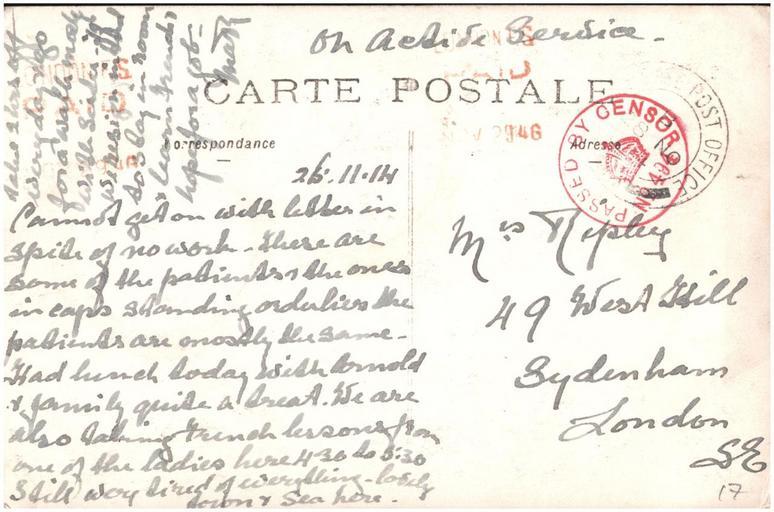 On Active Service.
CARTE POSTALE
Correspondance
Adresse
PASSED BY CENSOR
No
POST OFFICE
26.11.14
Cannot get on with letter in
spite of no work. There are
some of the patients & the ones
in caps standing orderlies the
patients are mostly the same.
Had lunch today with Arnold
& family quite a treat. We are
also taking French lessons from
one of the ladies here 4.30 to 5.30
Still very tired of everything lovely
town & sea here.
off
every day & go
for a walk
with
in the
to stay in room
& learn French
hope for a job
PAID
Mrs Ripley
49 West Hill
Sydenham
London
SE
17